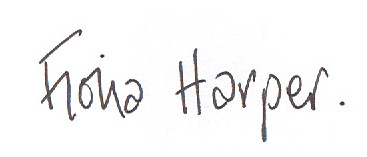 Fiona Harper.